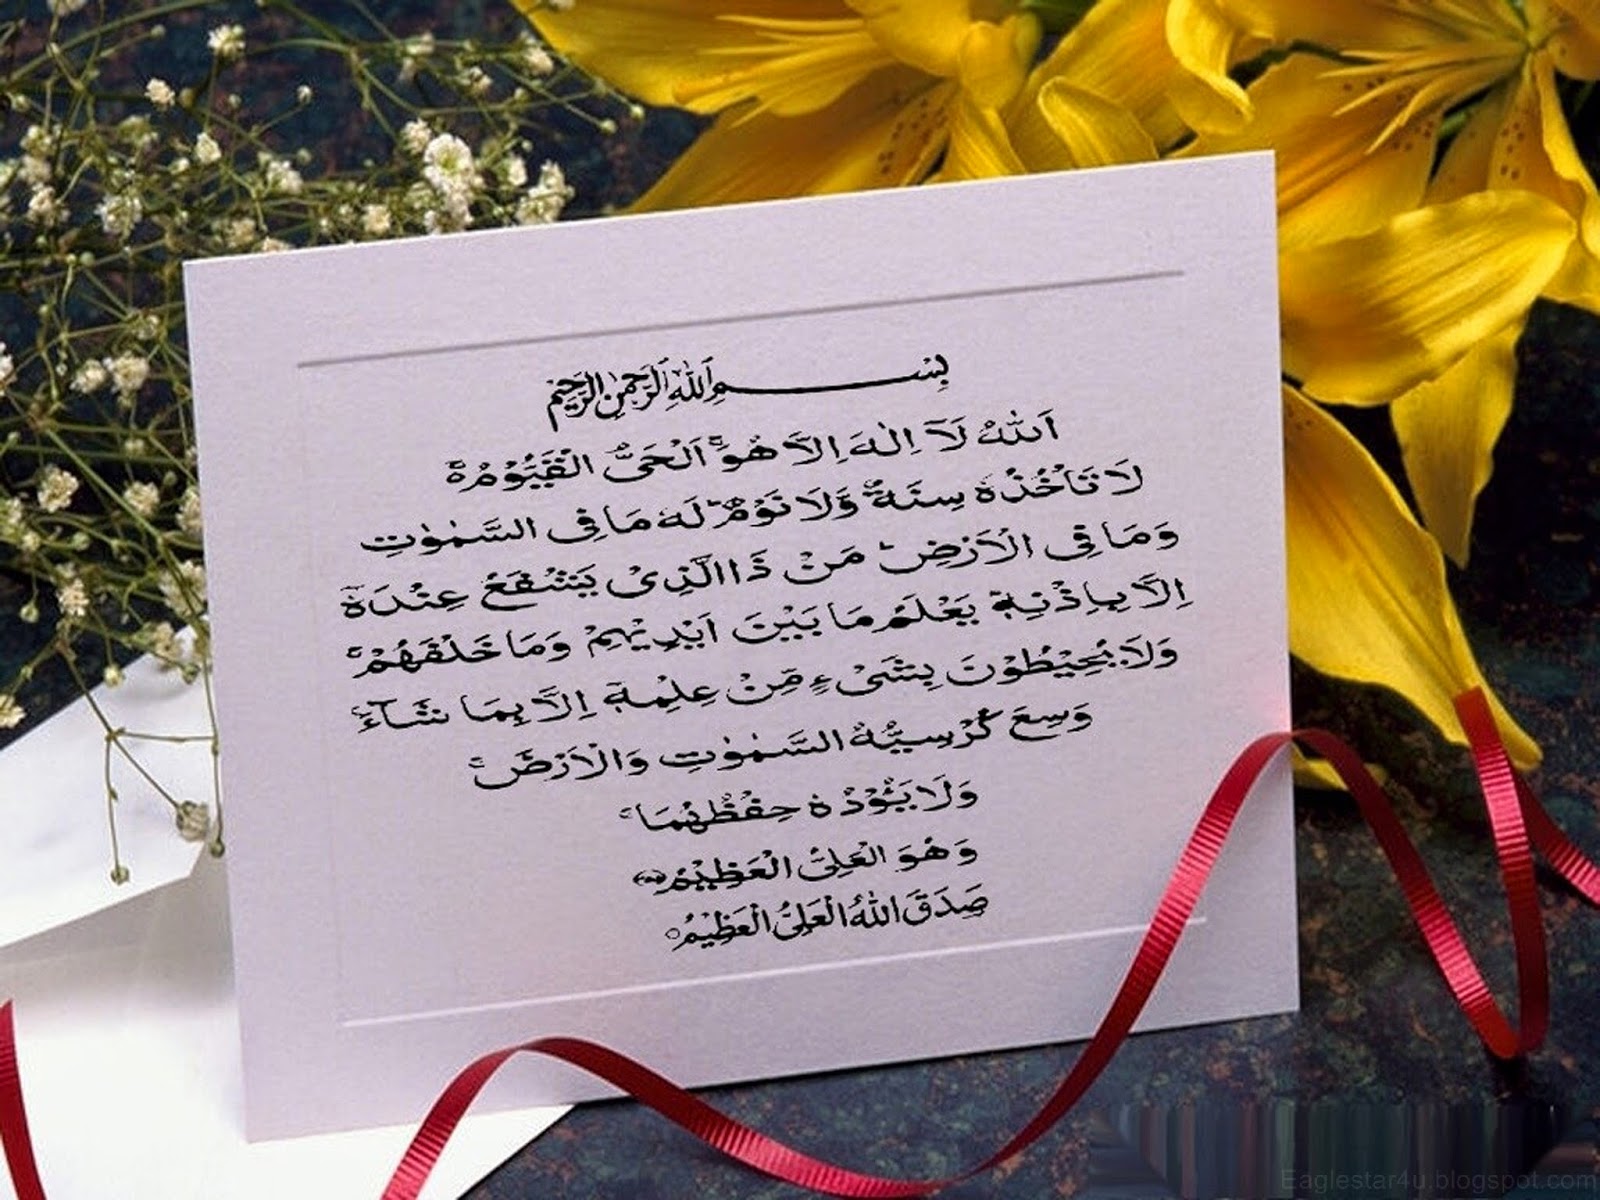 بِسْمِ اللّٰهِ الرَّحْمٰنِ الرَّحِيْمِ
اَللّٰهُ لَآ اِلٰهَ اِلَّا هُوَۚ اَلْحَیُّ الْقَيُّوْمُ ەۚ
لَا تَاْخُذُهٗ سِنَةٌ وَّلَا نَوْمٌؕ لَهٗ مَا فِی السَّمٰوٰتِ
وَمَا فِی الْاَرْضِؕ مَنْ ذَا الَّذِیْ يَشْفَعُ عِنْدَهٗۤ
اِلَّا بِاِذْنِهٖؕ يَعْلَمُ مَا بَيْنَ اَيْدِيْهِمْ وَمَا خَلْفَهُمْۚ
وَلَا يُحِيْطُوْنَ بِشَیْءٍ مِّنْ عِلْمِهٖۤ اِلَّا بِمَا شَآءَۚ
وَسِعَ كُرْسِيُّهُ السَّمٰوٰتِ وَالْاَرْضَۚ
وَلَا يَـُٔوْدُهٗ حِفْظُهُمَاۚ
وَهُوَ الْعَلِیُّ الْعَظِيْمُ
صَدَقَ اللّٰهُ الْعَلِیُّ الْعَظِيْمُ
Eaglestar4u.blogspot.com